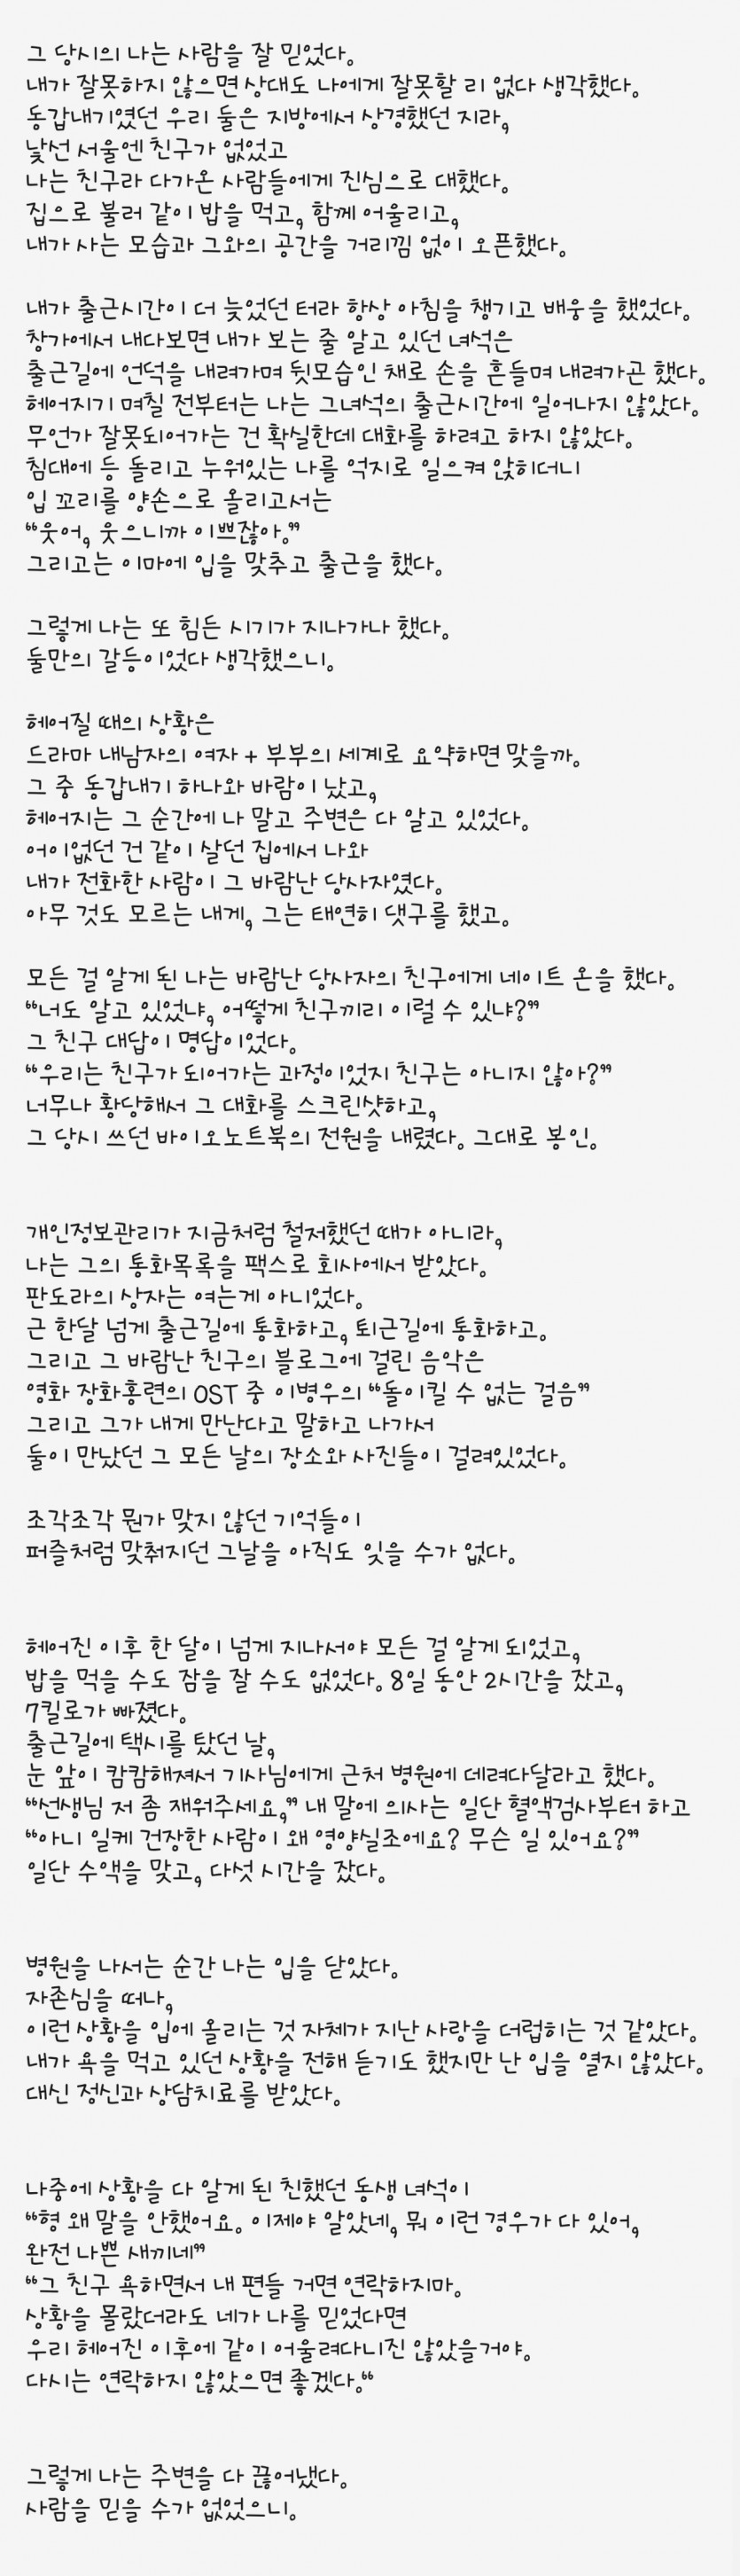 그 당시의 나는 사람을 잘 믿었다.
내가 잘못하지 않으면 상대도 나에게 잘못할 리 없다 생각했다.
동갑내기였던 우리 둘은 지방에서 상경했던 지라,
낯선 서울엔 친구가 없었고
나는 친구라 다가온 사람들에게 진심으로 대했다.
집으로 불러 같이 밥을 먹고, 함께 어울리고,
내가 사는 모습과 그와의 공간을 거리낌 없이 오픈했다.

내가 출근시간이 더 늦었던 터라 항상 아침을 챙기고 배웅을 했었다.
창가에서 내다보면 내가 보는 줄 알고 있던 녀석은
출근길에 언덕을 내려가며 뒷모습인 채로 손을 흔들며 내려가곤 했다.
헤어지기 며칠 전부터는 나는 그녀석의 출근시간에 일어나지 않았다.
무언가 잘못되어가는 건 확실한데 대화를 하려고 하지 않았다.
침대에 등 돌리고 누워있는 나를 억지로 일으켜 앉히더니
입 꼬리를 양손으로 올리고서는
“웃어, 웃으니까 이쁘잖아.”
그리고는 이마에 입을 맞추고 출근을 했다.

그렇게 나는 또 힘든 시기가 지나가나 했다.
둘만의 갈등이었다 생각했으니.

헤어질 때의 상황은
드라마 내남자의 여자 + 부부의 세계로 요약하면 맞을까.
그 중 동갑내기 하나와 바람이 났고,
헤어지는 그 순간에 나 말고 주변은 다 알고 있었다.
어이없던 건 같이 살던 집에서 나와
내가 전화한 사람이 그 바람난 당사자였다.
아무 것도 모르는 내게, 그는 태연히 댓구를 했고.

모든 걸 알게 된 나는 바람난 당사자의 친구에게 네이트 온을 했다.
“너도 알고 있었냐, 어떻게 친구끼리 이럴 수 있냐?”
그 친구 대답이 명답이었다.
“우리는 친구가 되어가는 과정이었지 친구는 아니지 않아?”
너무나 황당해서 그 대화를 스크린샷하고,
그 당시 쓰던 바이오노트북의 전원을 내렸다. 그대로 봉인.

개인정보관리가 지금처럼 철저했던 때가 아니라,
나는 그의 통화목록을 팩스로 회사에서 받았다.
판도라의 상자는 여는게 아니었다.
근 한달 넘게 출근길에 통화하고, 퇴근길에 통화하고.
그리고 그 바람난 친구의 블로그에 걸린 음악은
영화 장화홍련의 OST 중 이병우의 “돌이킬 수 없는 걸음”
그리고 그가 내게 만난다고 말하고 나가서
둘이 만났던 그 모든 날의 장소와 사진들이 걸려있었다.

조각조각 뭔가 맞지 않던 기억들이
퍼즐처럼 맞춰지던 그날을 아직도 잊을 수가 없다.

헤어진 이후 한 달이 넘게 지나서야 모든 걸 알게 되었고,
밥을 먹을 수도 잠을 잘 수도 없었다. 8일 동안 2시간을 잤고,
7킬로가 빠졌다.
출근길에 택시를 탔던 날,
눈 앞이 캄캄해져서 기사님에게 근처 병원에 데려다달라고 했다.
“선생님 저 좀 재워주세요,” 내 말에 의사는 일단 혈액검사부터 하고
“아니 일케 건장한 사람이 왜 영양실조에요? 무슨 일 있어요?”
일단 수액을 맞고, 다섯 시간을 잤다.

병원을 나서는 순간 나는 입을 닫았다.
자존심을 떠나,
이런 상황을 입에 올리는 것 자체가 지난 사랑을 더럽히는 것 같았다.
내가 욕을 먹고 있던 상황을 전해 듣기도 했지만 난 입을 열지 않았다.
대신 정신과 상담치료를 받았다.

나중에 상황을 다 알게 된 친했던 동생 녀석이
“형 왜 말을 안했어요. 이제야 알았네, 뭐 이런 경우가 다 있어,
완전 나쁜 새끼네”
“그 친구 욕하면서 내 편들 거면 연락하지마.
상황을 몰랐더라도 네가 나를 믿었다면
우리 헤어진 이후에 같이 어울려다니진 않았을거야.
다시는 연락하지 않았으면 좋겠다.“

그렇게 나는 주변을 다 끊어냈다.
사람을 믿을 수가 없었으니.